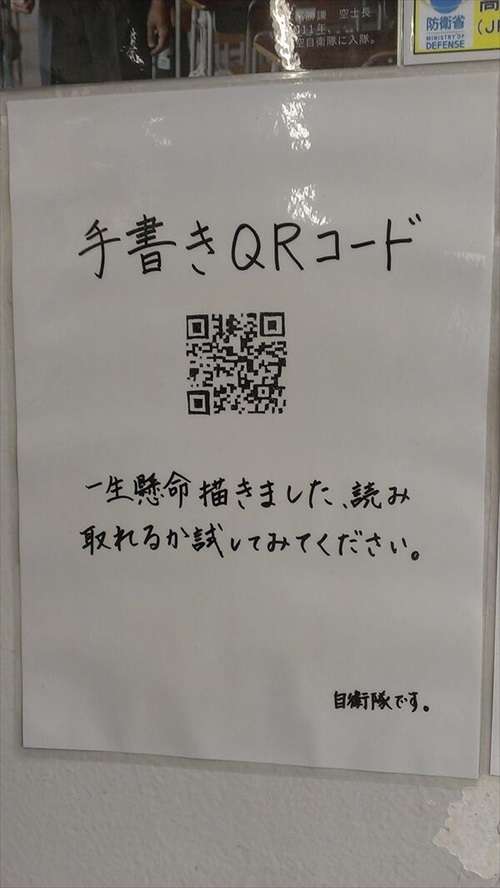 空士長
入隊。
防衛省
MINISTRY OF
DEFENSE
手書きQRコード
一生懸命描きました、読み
取れるか試してみてください。
自衛隊です。